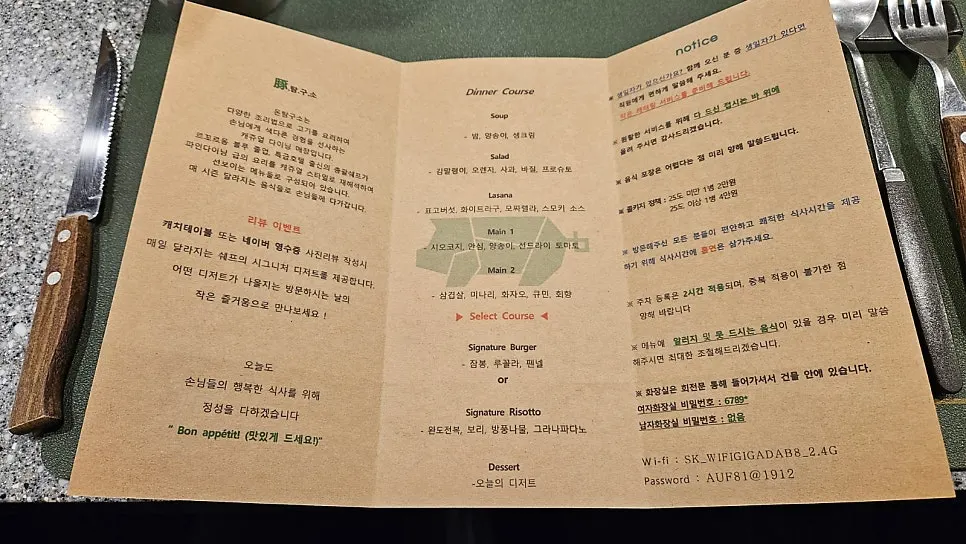 豚탐구소
돈탐구소는
다양한 조리법으로 고기를 요리하여
손님에게 색다른 경험을 선사하는
캐쥬얼 다이닝 매장입니다.
르꼬르동 블루 졸업, 특급호텔 출신의 총괄쉐프가
파인다이닝 급의 요리를 캐쥬얼 스타일로 재해석하여
선보이는 메뉴들로 구성되어 있습니다.
매 시즌 달라지는 음식들로 손님들에 다가갑니다.
리뷰 이벤트
캐치테이블 또는 네이버 영수증 사진리뷰 작성시
매일 달라지는 쉐프의 시그니저 디저트를 제공합니다.
어떤 디저트가 나올지는 방문하시는 날의
작은 즐거움으로 만나보세요 !
오늘도
손님들의 행복한 식사를 위해
정성을 다하겠습니다
" Bon appétit! (맛있게 드세요!)"
Dinner Course
Soup
- 밤, 양송이, 생크림
Salad
- 김말랭이, 오렌지, 사과, 바질, 프로슈토
Lasana
- 표고버섯, 화이트라구, 모짜렐라, 스모키 소스
Main 1
- 시오코지, 안심, 양송이, 선드라이 토마토
Main 2
- 삼겹살, 미나리, 화자오, 큐민, 회향
▶ Select Course ◀
Signature Burger
- 잠봉, 루꼴라, 팬넬
or
Signature Risotto
- 완도전복, 보리, 방풍나물, 그라나파다노
Dessert
-오늘의 디저트
notice
※ 생일자가 있으신가요? 함께 오신 분 중 생일자가 있다면
직원에게 편하게 말씀해 주세요.
작은 레터링 서비스를 준비해 드립니다.
※ 원활한 서비스를 위해 다 드신 접시는 바 위에
올려 주시면 감사드리겠습니다.
※ 음식 포장은 어렵다는 점 미리 양해 말씀드립니다.
※ 콜키지 정책 : 25도 미만 1병 2만원
25도 이상 1병 4만원
※ 방문해주신 모든 분들이 편안하고 쾌적한 식사시간을 제공
하기 위해 식사시간에 흡연은 삼가주세요.
※ 주차 등록은 2시간 적용되며, 중복 적용이 불가한 점
양해 바랍니다
※ 메뉴에 알러지 및 못 드시는 음식이 있을 경우 미리 말씀
해주시면 최대한 조절해드리겠습니다.
※ 화장실은 회전문 통해 들어가셔서 건물 안에 있습니다.
여자화장실 비밀번호 : 6789*
남자화장실 비밀번호 : 없음
Wi-fi : SK_WIFIGIGADAB8_2.4G
Password : AUF81@1912